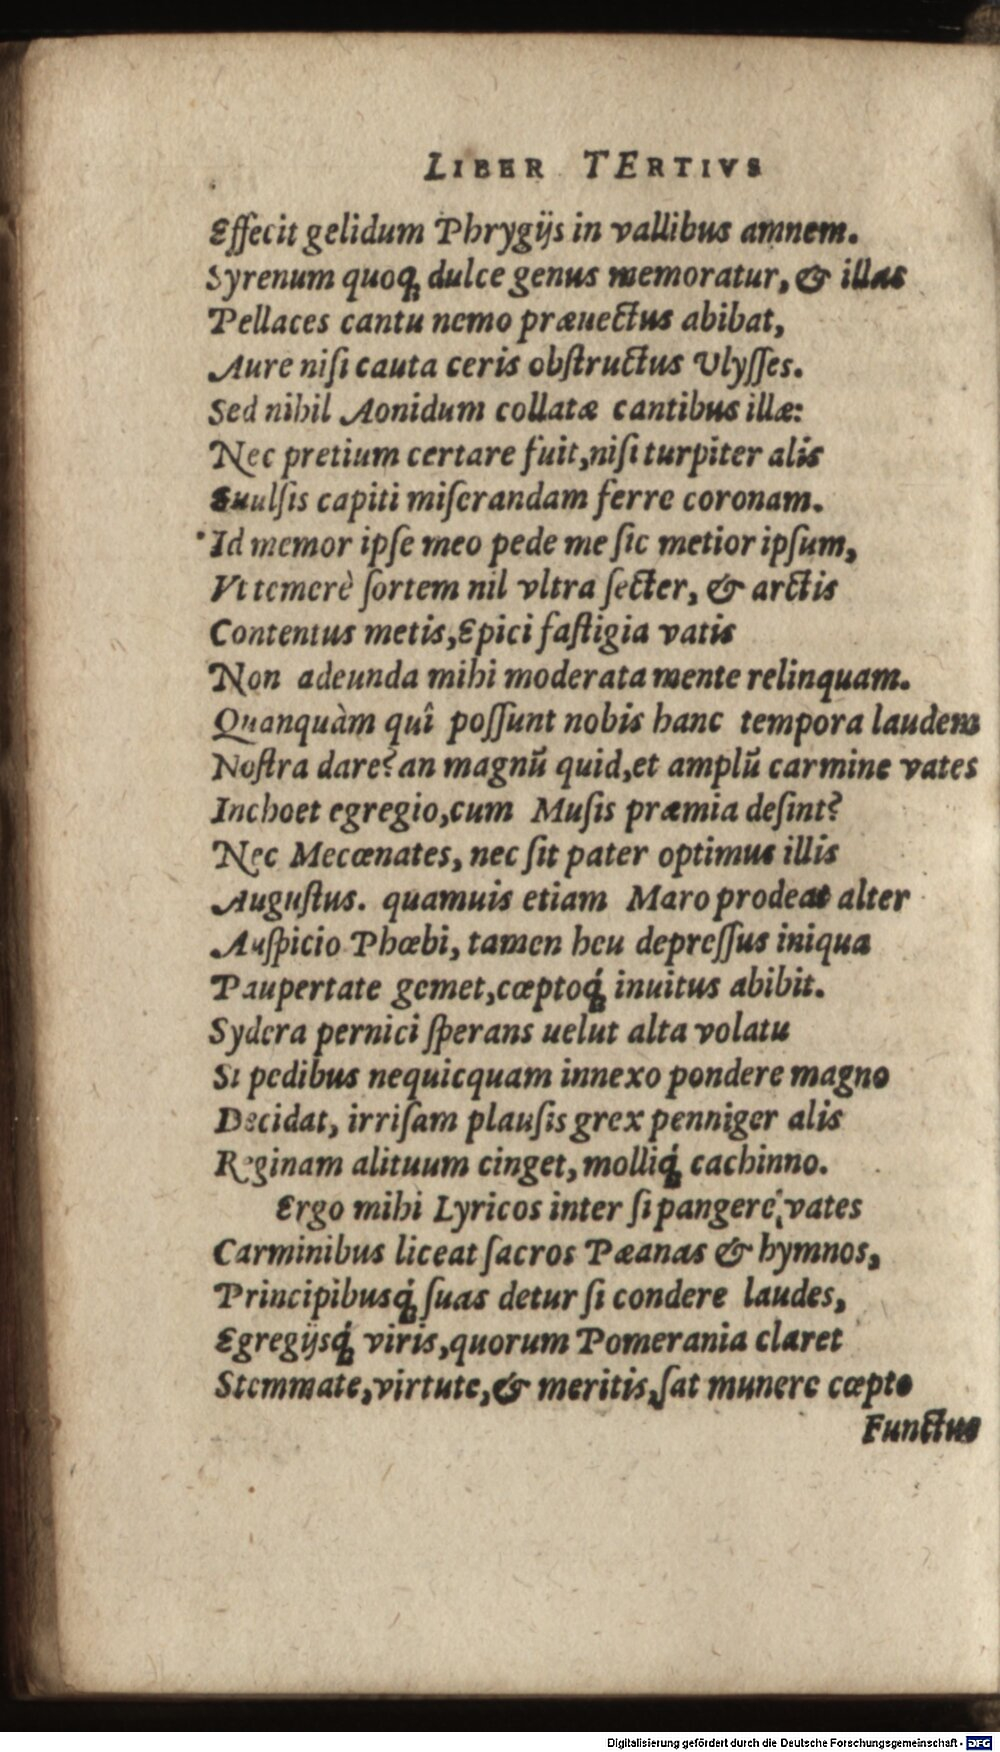 LIBER TERTIVS
Effecit gelidum Phrygijs in vallibus amnem.
Syrenum quoq́; dulce genus memoratur, & illas
Pellaces cantu nemo præuectus abibat,
Aure niſi cauta ceris obſtructus Vlyſſes.
Sed nihil Aonidum collatæ cantibus illæ:
Nec pretium certare fuit, niſi turpiter alis
Euulſis capiti miſerandam ferre coronam.
Id memor ipſe meo pede me ſic metior ipſum,
Vt temerè ſortem nil vltra ſecter, & arctis
Contentus metis, Epici faſtigia vatis
Non adeunda mihi moderata mente relinquam.
Quanquàm quî poſſunt nobis hanc tempora laudem
Noſtra dare? an magnũ quid, et amplũ carmine vates
Inchoet egregio, cum Muſis præmia deſint?
Nec Mecœnates, nec ſit pater optimus illis
Auguſtus. quamuis etiam Maro prodeat alter
Auſpicio Phœbi, tamen heu depreſſus iniqua
Paupertate gemet, cœptoq́; inuitus abibit.
Sydera pernici ſperans uelut alta volatu
Si pedibus nequicquam innexo pondere magno
Decidat, irriſam plauſis grex penniger alis
Reginam alituum cinget, molliq́; cachinno.
Ergo mihi Lyricos inter ſi pangere vates
Carminibus liceat ſacros Pæanas & hymnos,
Principibusq́; ſuas detur ſi condere laudes,
Egregijsq́; viris, quorum Pomerania claret
Stemmate, virtute, & meritis, ſat munere cœpto
Functus
Digitalisierung gefördert durch die Deutsche Forschungsgemeinschaft - DFG